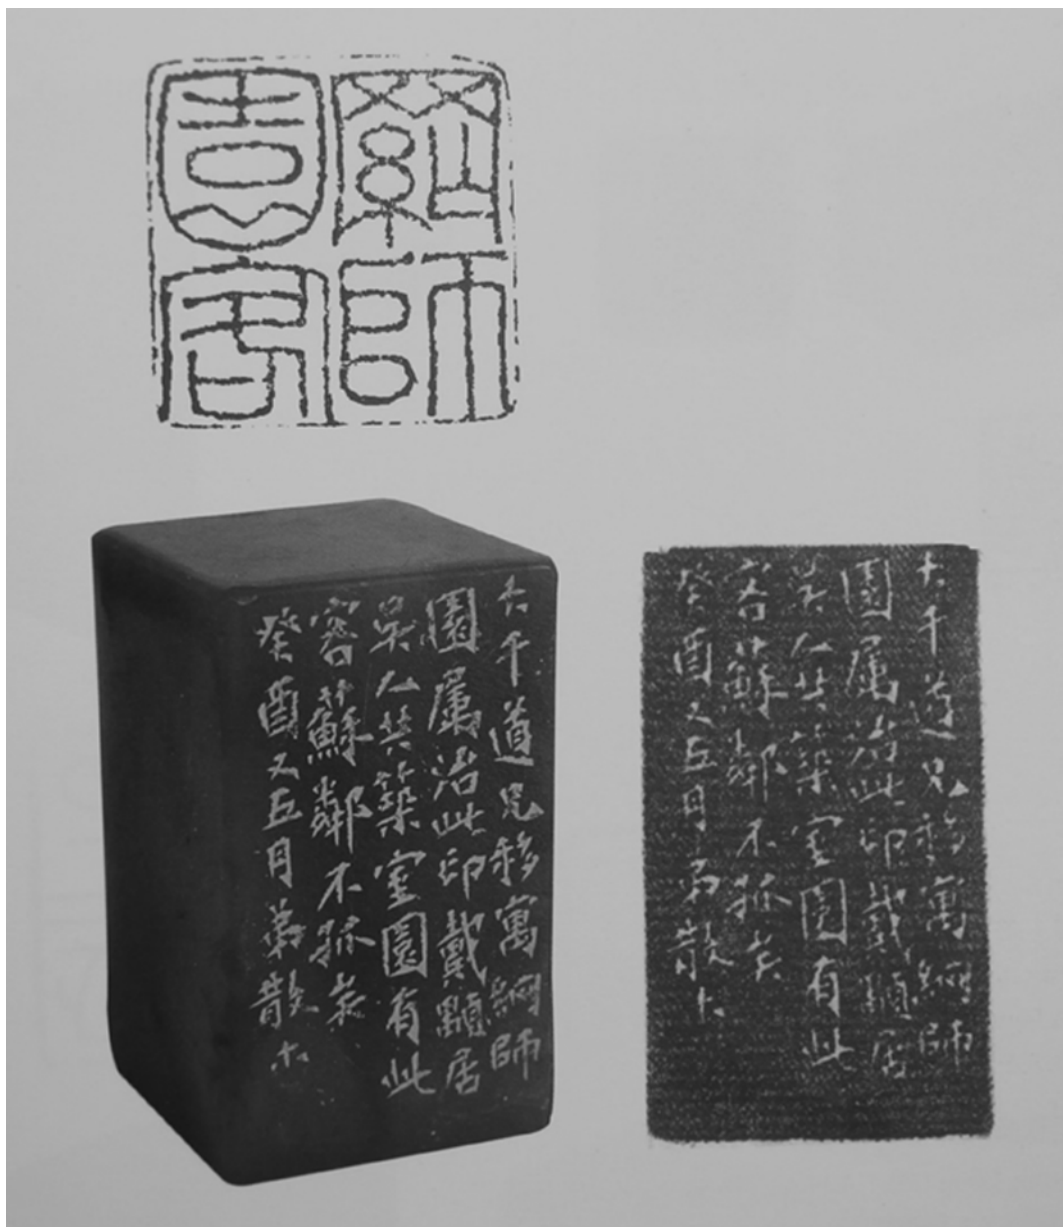 網師
園客
大千道兄移寓網師
園属治此印戴顒居
吳人共築室園有此
客蘇鄰不孤矣
癸酉又五月弟散木
大千道兄移寓網師
園属治此印戴顒居
吳人共築室園有此
客蘇鄰不孤矣
癸酉又五月弟散木